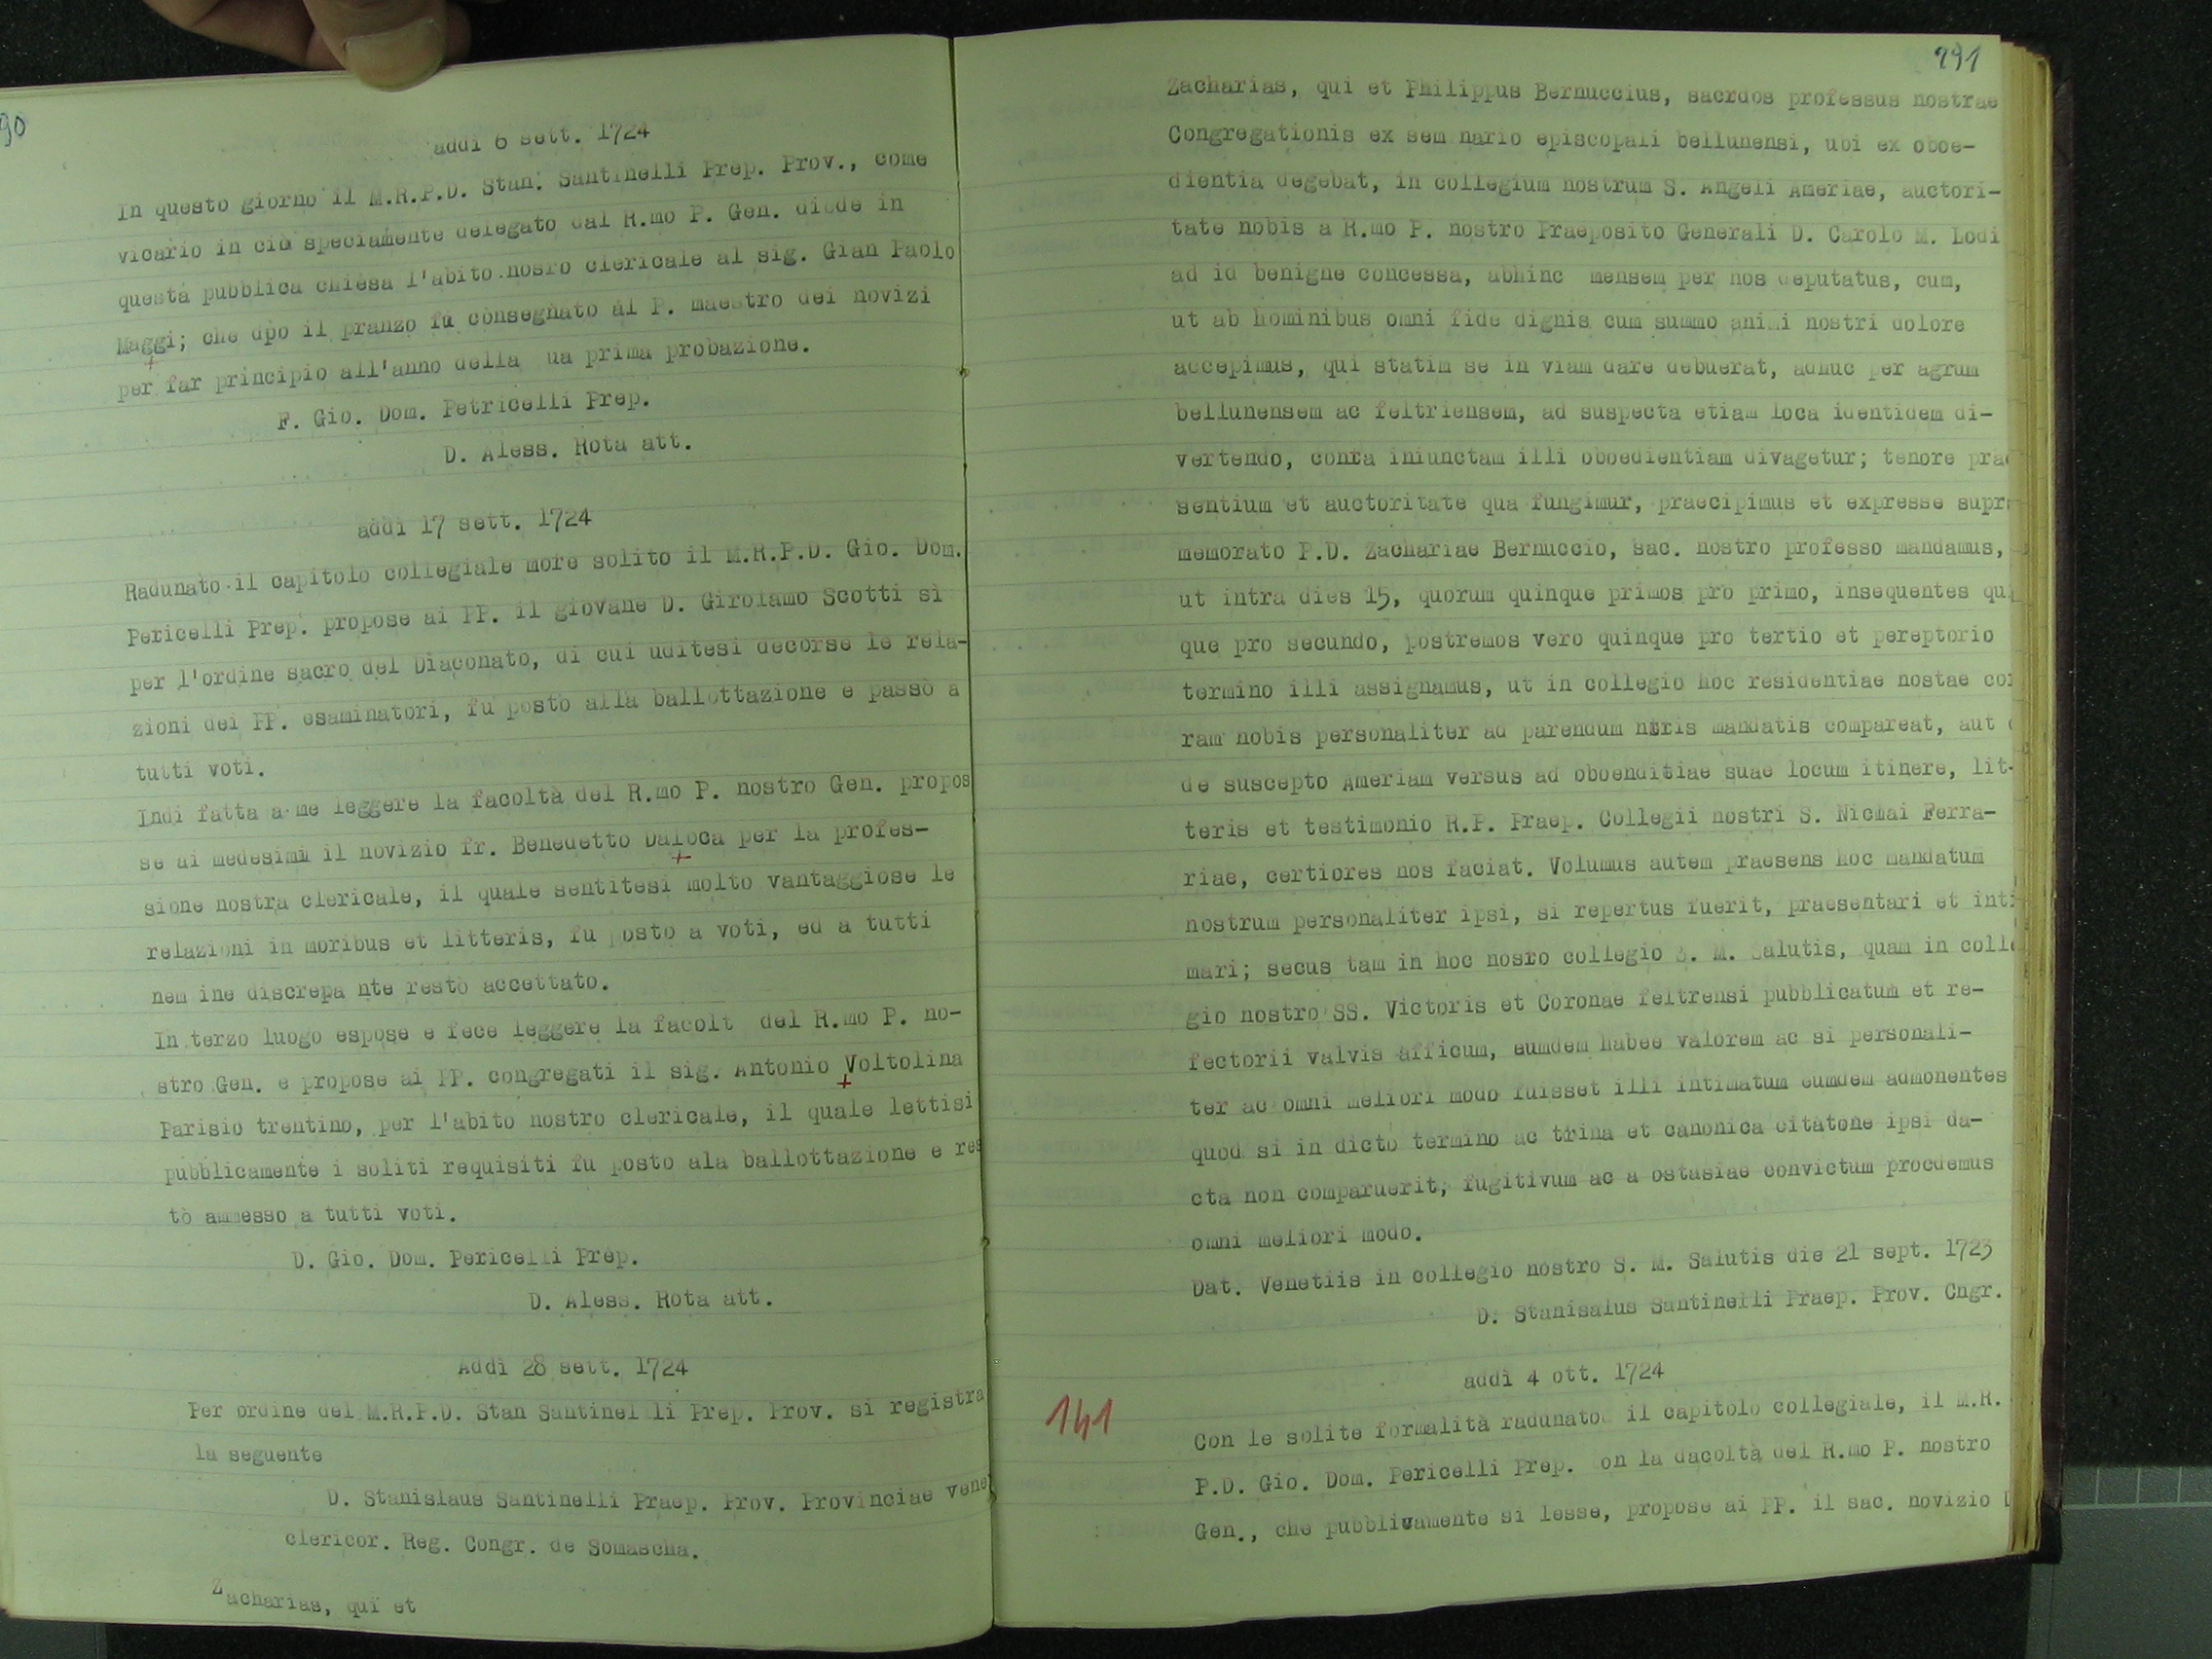 90
addì 6 sett. 1724
In questo giorno il M.R.P.D. Stan. Santinelli Prep. Prov., come
vicario in ciò speciamente delegato dal R.mo P. Gen. diede in
questa pubblica chiesa l'abito nosro clericale al sig. Gian Paolo
Maggi; che dpo il pranzo fu consegnato al P. maestro dei novizi
per far principio all'anno della ua prima probazione.
F. Gio. Dom. Petricelli Prep.
D. Aless. Rota att.
addì 17 sett. 1724
Radunato il capitolo collegiale more solito il M.R.P.D. Gio. Dom.
Pericelli Prep. propose ai PP. il giovane D. Girolamo Scotti sì
per l'ordine sacro del Diaconato, di cui uditesi decorse le rela-
zioni dei PP. esaminatori, fu posto alla ballottazione e passò a
tutti voti.
Indi fatta a me leggere la facoltà del R.mo P. nostro Gen. propos
se ai medesimi il novizio fr. Benedetto Daloca per la profes-
sione nostra clericale, il quale sentitesi molto vantaggiose le
relazioni in moribus et litteris, fu posto a voti, ed a tutti
nem ine discrepa nte restò accettato.
In terzo luogo espose e fece leggere la facolt del R.mo P. no-
stro Gen. e propose ai PP. congregati il sig. Antonio Voltolina
Parisio trentino, per l'abito nostro clericale, il quale lettisi
pubblicamente i soliti requisiti fu posto ala ballottazione e res
tò ammesso a tutti voti.
D. Gio. Dom. Pericelli Prep.
D. Aless. Rota att.
Addì 28 sett. 1724
Per ordine del M.R.P.D. Stan Santinelli Prep. Prov. si registra
la seguente
D. Stanislaus Santinelli Praep. Prov. Provinciae vene
clericor. Reg. Congr. de Somascha.
Zacharias, qui et
291
Zacharias, qui et Philippus Bernuccius, sacrdos professus nostrae
Congregationis ex sem nario episcopali bellunensi, ubi ex oboe-
dientia degebat, in collegium nostrum S. Angeli Ameriae, auctori-
tate nobis a R.mo P. nostro Praeposito Generali D. Carolo M. Lodi
ad id benigne concessa, abhinc mensem per nos deputatus, cum,
ut ab hominibus omni fide dignis cum summo animi nostri dolore
accepimus, qui statim se in viam dare debuerat, adhuc per agrum
bellunensem ac feltriensem, ad suspecta etiam loca identidem di-
vertendo, conta iniunctam illi oboedientiam divagetur; tenore prae
sentium et auctoritate qua fungimur, praecipimus et expresse supr
memorato P.D. Zachariae Bernuccio, sac. nostro professo mandamus,
ut intra dies 15, quorum quinque primos pro primo, insequentes qui
que pro secundo, postremos vero quinque pro tertio et pereptorio
termino illi assignamus, ut in collegio hoc residentiae nostae co
ram nobis personaliter ad parendum nsris mandatis compareat, aut
de suscepto Ameriam versus ad oboenditiae suae locum itinere, lit-
teris et testimonio R.P. Praep. Collegii nostri S. Nicmai Ferra-
riae, certiores nos faciat. Volumus autem praesens hoc mandatum
nostrum personaliter ipsi, si repertus fuerit, praesentari et inti
mari; secus tam in hoc nosro collegio S. M. Salutis, quam in colle
gio nostro SS. Victoris et Coronae feltrensi pubblicatum et re-
fectorii valvis afficum, eumdem habee valorem ac si personali-
ter ac omni meliori modo fuisset illi intimatum eumdem admonentes
quod si in dicto termino ac trina et canonica citatone ipsi da-
cta non comparuerit, fugitivum ac a ostasiae convictum procdemus
omni meliori modo.
Dat. Venetiis in collegio nostro S. M. Salutis die 21 sept. 1723
D. Stanisalus Santinelli Praep. Prov. Cngr.
addì 4 ott. 1724
141
Con le solite formalità radunato il capitolo collegiale, il M.R.
P.D. Gio. Dom. Pericelli Prep. on la dacoltà del R.mo P. nostro
Gen., che pubblivamente si lesse, propose ai PP. il sac. novizio D